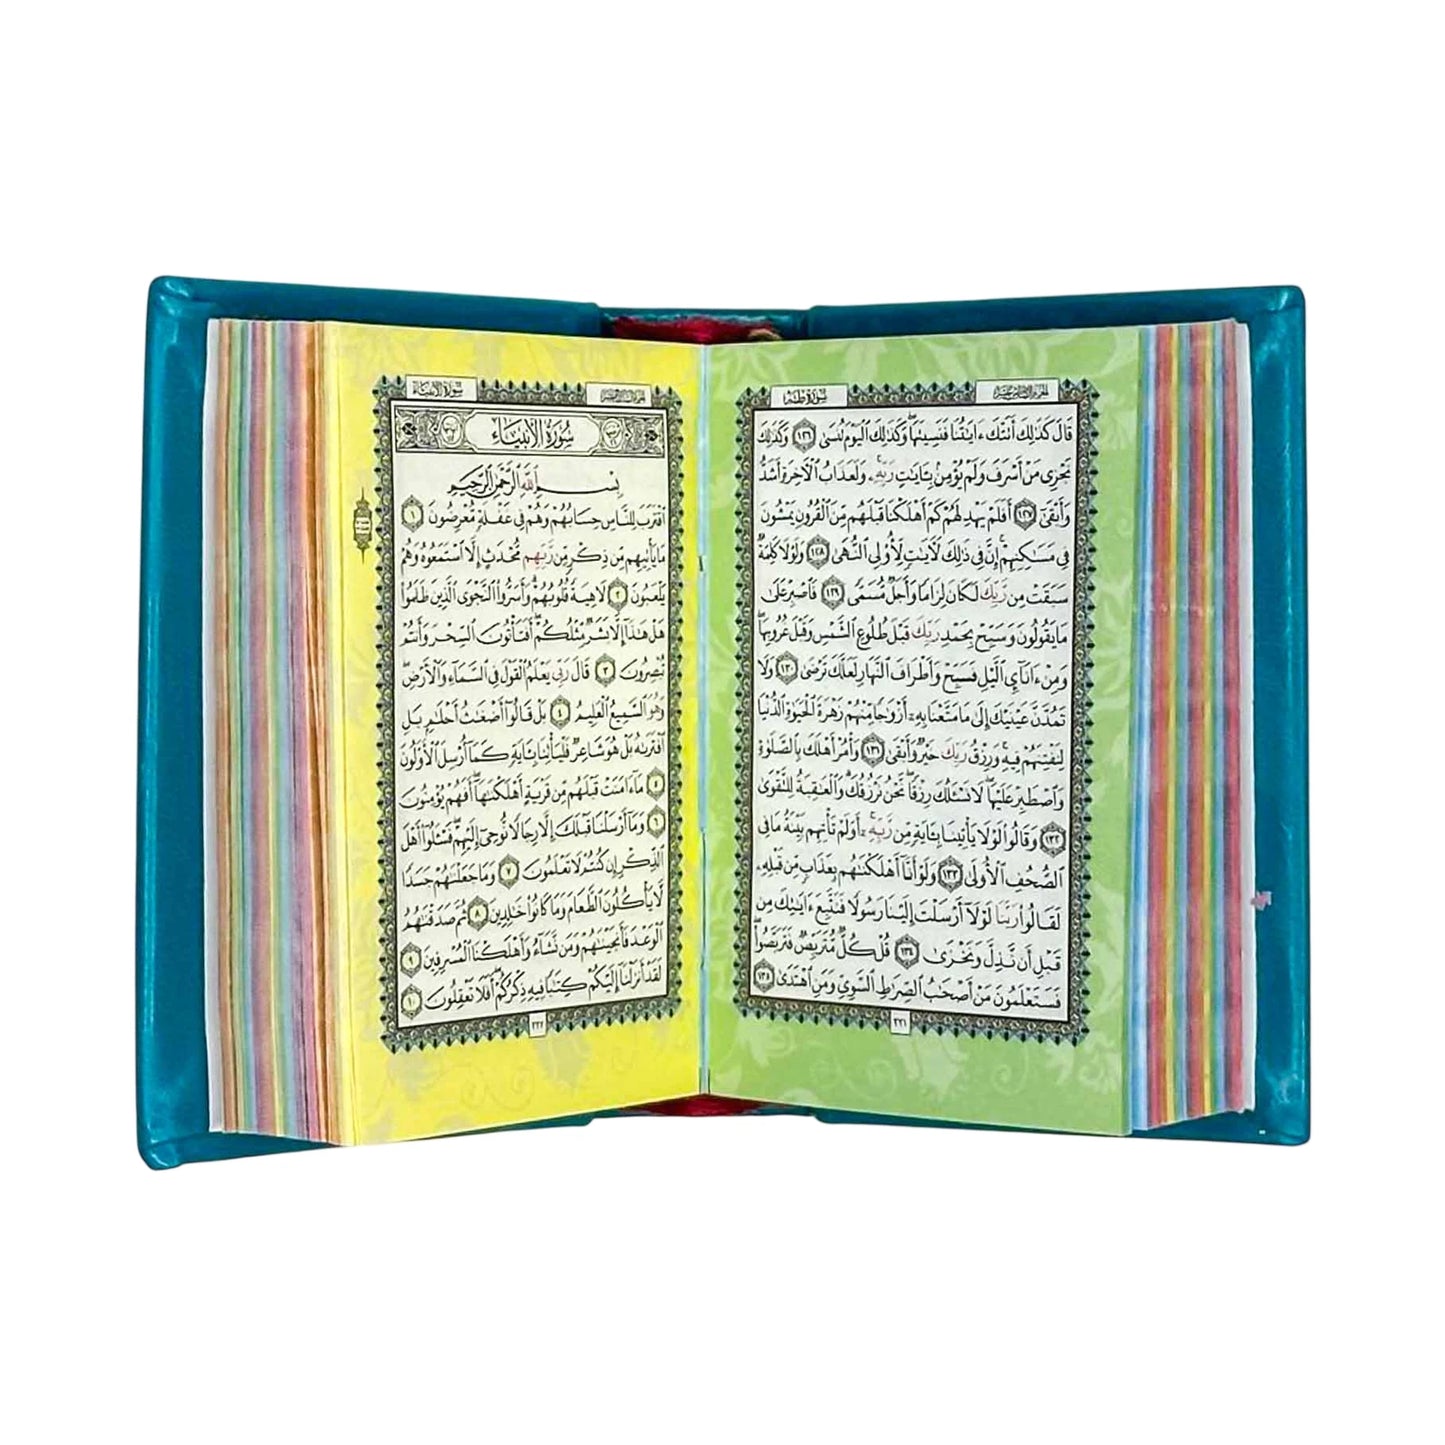 سورة طه
الجزء السادس عشر
قَالَ كَذَٰلِكَ أَتَتْكَ ءَايَٰتُنَا فَنَسِيتَهَا ۖ وَكَذَٰلِكَ ٱلْيَوْمَ تُنسَىٰ ١٢٦ وَكَذَٰلِكَ
نَجْزِى مَنْ أَسْرَفَ وَلَمْ يُؤْمِنۢ بِـَٔايَٰتِ رَبِّهِۦ ۚ وَلَعَذَابُ ٱلْءَاخِرَةِ أَشَدُّ
وَأَبْقَىٰٓ ١٢٧ أَفَلَمْ يَهْدِ لَهُمْ كَمْ أَهْلَكْنَا قَبْلَهُم مِّنَ ٱلْقُرُونِ يَمْشُونَ
فِى مَسَٰكِنِهِمْ ۗ إِنَّ فِى ذَٰلِكَ لَءَايَٰتٍ لِّأُو۟لِى ٱلنُّهَىٰ ١٢٨ وَلَوْلَا كَلِمَةٌ
سَبَقَتْ مِن رَّبِّكَ لَكَانَ لِزَامًا وَأَجَلٌ مُّسَمًّى ١٢٩ فَٱصْبِرْ عَلَىٰ
مَا يَقُولُونَ وَسَبِّحْ بِحَمْدِ رَبِّكَ قَبْلَ طُلُوعِ ٱلشَّمْسِ وَقَبْلَ غُرُوبِهَا ۖ
وَمِنْ ءَانَآئِ ٱلَّيْلِ فَسَبِّحْ وَأَطْرَافَ ٱلنَّهَارِ لَعَلَّكَ تَرْضَىٰ ١٣٠ وَلَا
تَمُدَّنَّ عَيْنَيْكَ إِلَىٰ مَا مَتَّعْنَا بِهِۦٓ أَزْوَٰجًا مِّنْهُمْ زَهْرَةَ ٱلْحَيَوٰةِ ٱلدُّنْيَا
لِنَفْتِنَهُمْ فِيهِ ۚ وَرِزْقُ رَبِّكَ خَيْرٌ وَأَبْقَىٰ ١٣١ وَأْمُرْ أَهْلَكَ بِٱلصَّلَوٰةِ
وَٱصْطَبِرْ عَلَيْهَا ۖ لَا نَسْـَٔلُكَ رِزْقًا ۖ نَّحْنُ نَرْزُقُكَ ۗ وَٱلْعَٰقِبَةُ لِلتَّقْوَىٰ
١٣٢ وَقَالُوا۟ لَوْلَا يَأْتِينَا بِـَٔايَةٍ مِّن رَّبِّهِۦٓ ۚ أَوَلَمْ تَأْتِهِم بَيِّنَةُ مَا فِى
ٱلصُّحُفِ ٱلْأُولَىٰ ١٣٣ وَلَوْ أَنَّآ أَهْلَكْنَٰهُم بِعَذَابٍ مِّن قَبْلِهِۦ
لَقَالُوا۟ رَبَّنَا لَوْلَآ أَرْسَلْتَ إِلَيْنَا رَسُولًا فَنَتَّبِعَ ءَايَٰتِكَ مِن
قَبْلِ أَن نَّذِلَّ وَنَخْزَىٰ ١٣٤ قُلْ كُلٌّ مُّتَرَبِّصٌ فَتَرَبَّصُوا۟ ۖ
فَسَتَعْلَمُونَ مَنْ أَصْحَٰبُ ٱلصِّرَٰطِ ٱلسَّوِىِّ وَمَنِ ٱهْتَدَىٰ ١٣٥
٣٢١
سورة الأنبياء
سُورَةُ الأَنبِيَاء
بِسْمِ ٱللَّهِ ٱلرَّحْمَٰنِ ٱلرَّحِيمِ
ٱقْتَرَبَ لِلنَّاسِ حِسَابُهُمْ وَهُمْ فِى غَفْلَةٍ مُّعْرِضُونَ ١
مَا يَأْتِيهِم مِّن ذِكْرٍ مِّن رَّبِّهِم مُّحْدَثٍ إِلَّا ٱسْتَمَعُوهُ وَهُمْ
يَلْعَبُونَ ٢ لَاهِيَةً قُلُوبُهُمْ ۗ وَأَسَرُّوا۟ ٱلنَّجْوَى ٱلَّذِينَ ظَلَمُوا۟
هَلْ هَٰذَآ إِلَّا بَشَرٌ مِّثْلُكُمْ ۖ أَفَتَأْتُونَ ٱلسِّحْرَ وَأَنتُمْ
تُبْصِرُونَ ٣ قَالَ رَبِّى يَعْلَمُ ٱلْقَوْلَ فِى ٱلسَّمَآءِ وَٱلْأَرْضِ ۖ
وَهُوَ ٱلسَّمِيعُ ٱلْعَلِيمُ ٤ بَلْ قَالُوٓا۟ أَضْغَٰثُ أَحْلَٰمٍۭ بَلِ
ٱفْتَرَىٰهُ بَلْ هُوَ شَاعِرٌ فَلْيَأْتِنَا بِـَٔايَةٍ كَمَآ أُرْسِلَ ٱلْأَوَّلُونَ
٥ مَآ ءَامَنَتْ قَبْلَهُم مِّن قَرْيَةٍ أَهْلَكْنَٰهَآ ۖ أَفَهُمْ يُؤْمِنُونَ
٦ وَمَآ أَرْسَلْنَا قَبْلَكَ إِلَّا رِجَالًا نُّوحِىٓ إِلَيْهِمْ ۖ فَسْـَٔلُوٓا۟ أَهْلَ
ٱلذِّكْرِ إِن كُنتُمْ لَا تَعْلَمُونَ ٧ وَمَا جَعَلْنَٰهُمْ جَسَدًا
لَّا يَأْكُلُونَ ٱلطَّعَامَ وَمَا كَانُوا۟ خَٰلِدِينَ ٨ ثُمَّ صَدَقْنَٰهُمُ
ٱلْوَعْدَ فَأَنجَيْنَٰهُمْ وَمَن نَّشَآءُ وَأَهْلَكْنَا ٱلْمُسْرِفِينَ ٩
لَقَدْ أَنزَلْنَآ إِلَيْكُمْ كِتَٰبًا فِيهِ ذِكْرُكُمْ ۖ أَفَلَا تَعْقِلُونَ ١٠
٣٢٢